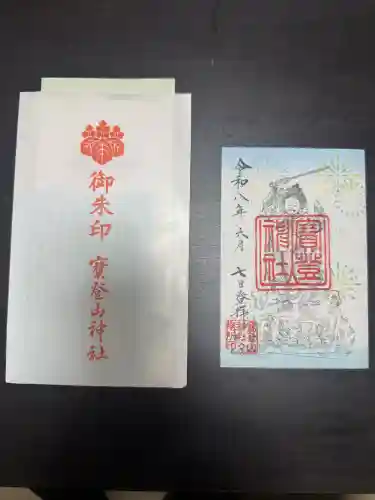 御朱印
寳登山神社
令和八年 六月 七日登拝
寳登山神社